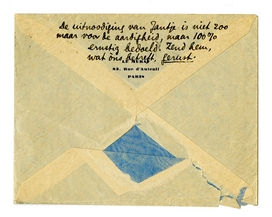 De uitnoodiging van Jantje is niet zoo
maar voor de aardigheid, maar 100%
ernstig bedoeld. Zend hem,
wat ons betreft, gerust.
83, Rue d'Auteuil
PARIS